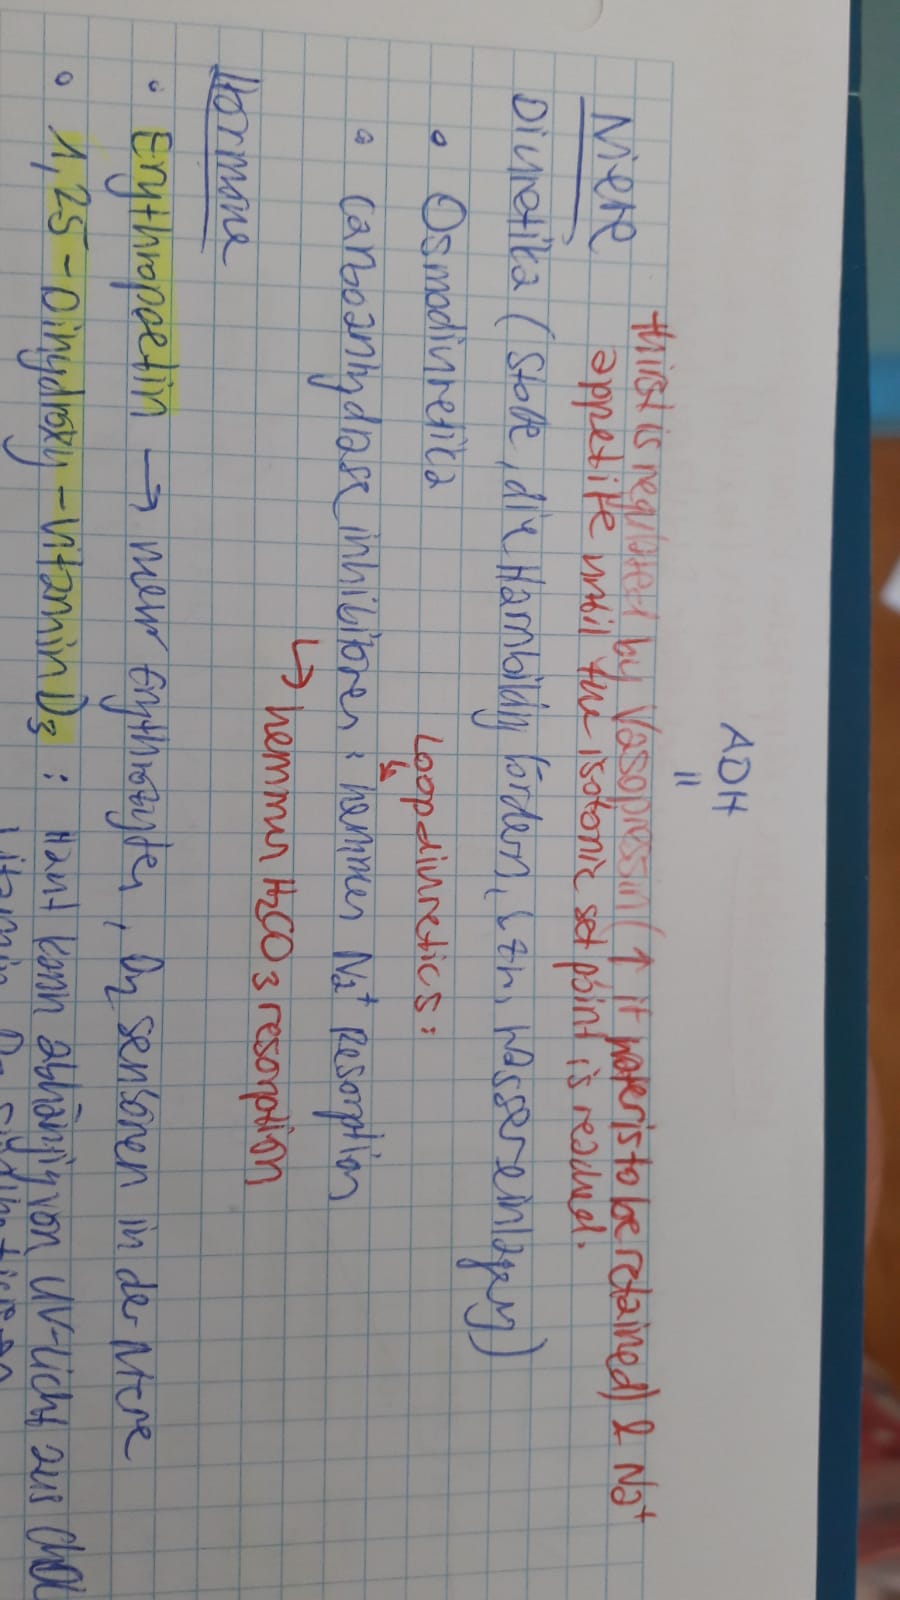 ADH
=
thirst is regulated by Vasopressin (↑ if water is to be retained) & Na⁺
appetite until the isotonic set point is reached.
Niere
Diuretika (Stoffe, die Harnbildung fördern, z.B., Wassereinlagerung)
• Osmodiuretica
Loop diuretics:
• Carboanhydrase inhibitoren: hemmen Na⁺ Resorption
↳ hemmen H₂CO₃ resorption
Hormone
• Erythropoetin → mehr Erythrozyten, O₂ sensoren in der Niere
• 1,25-Dihydroxy-Vitamin D₃: Haut kann abhängig von UV-Licht aus
Vitamin D₃